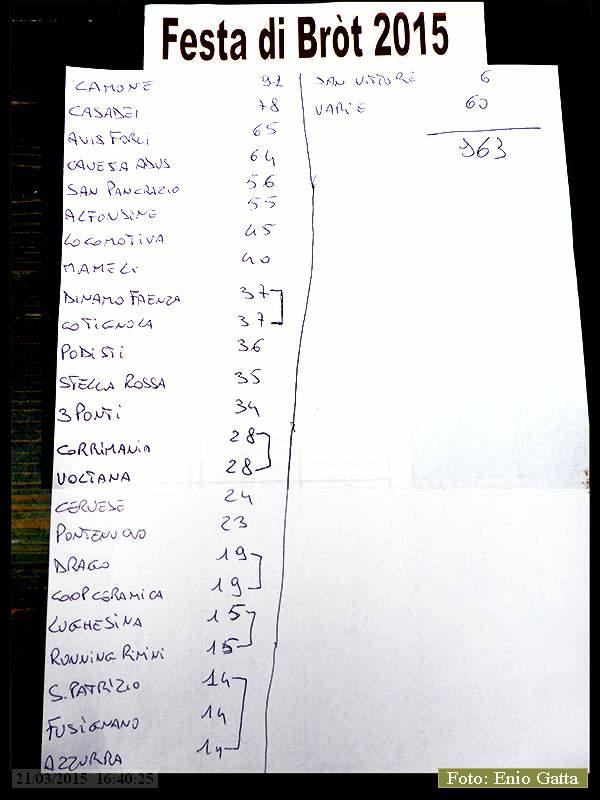 Festa di Bròt 2015
CAMONE 91
CASADEI 78
AVIS FORLI 65
CAVEJA ADUS 64
SAN PANCRAZIO 56
ALFONSINE 55
LOCOMOTIVA 45
MAMELI 40
DINAMO FAENZA 37
COTIGNOLA 37
PODISTI 36
STELLA ROSSA 35
3 PONTI 34
CORRIMANIA 28
VOLTANA 28
CERVESE 24
PONTENUOVO 23
DRAGO 19
COOP CERAMICA 19
LUGHESINA 15
RUNNING RIMINI 15
S. PATRIZIO 14
FUSIGNANO 14
AZZURRA 14
SAN VITTORE 6
VARIE 60
963
21/03/2015 16:40:25
Foto: Enio Gatta